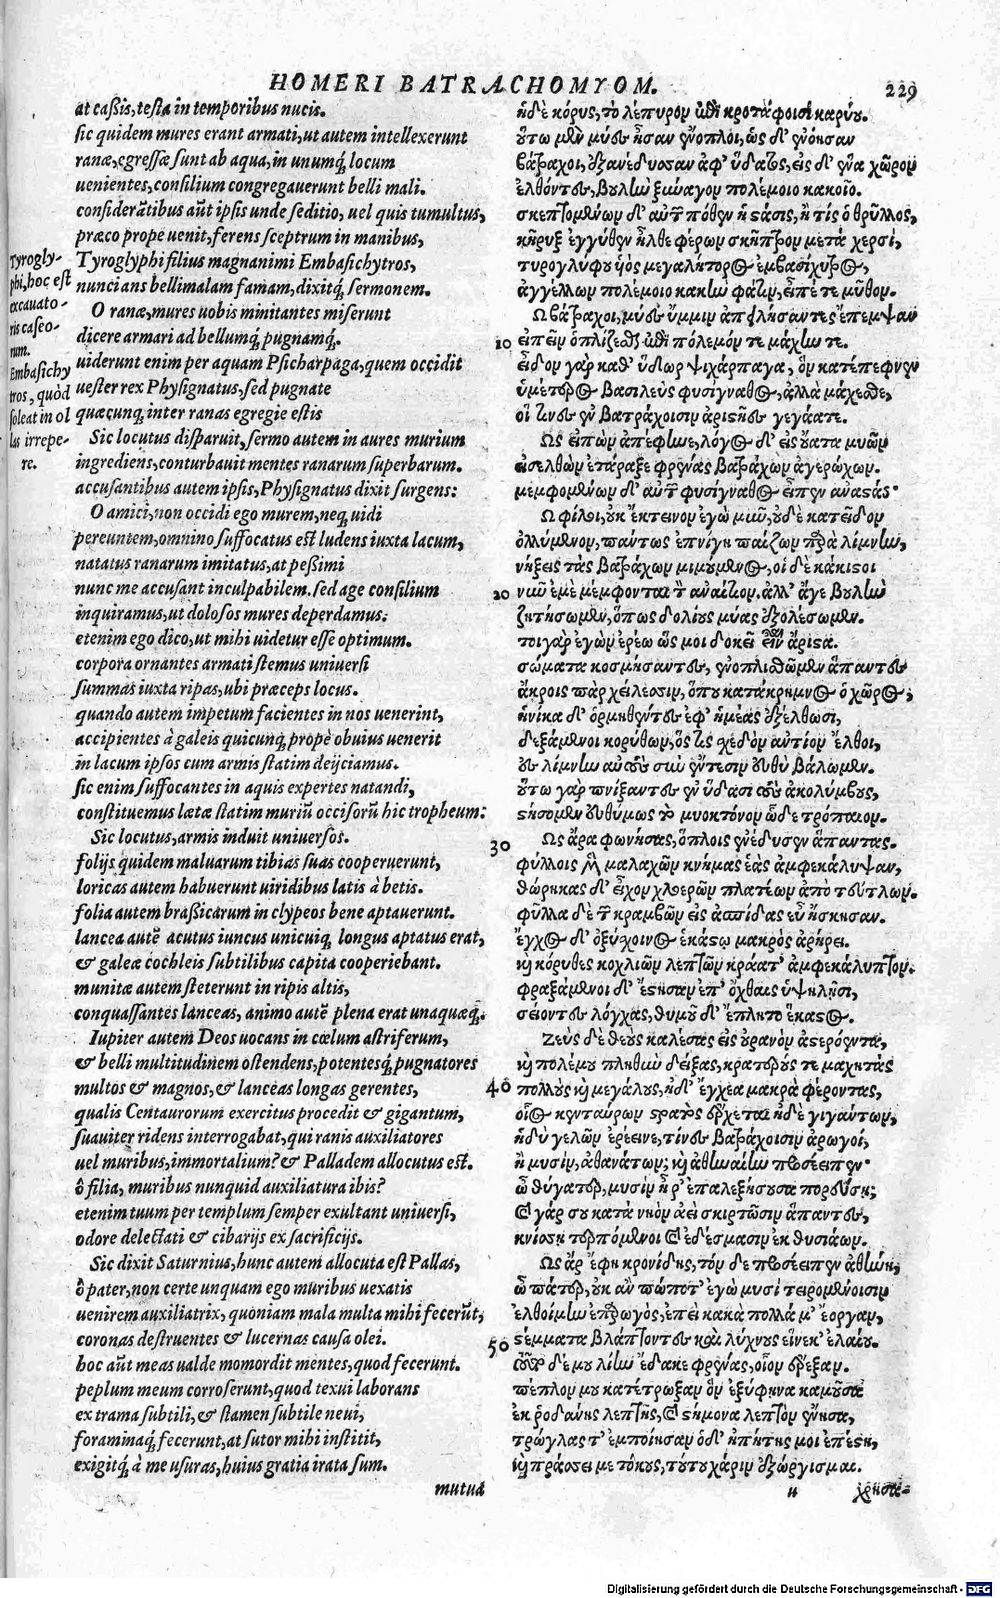 HOMERI BATRACHOMYOM.
229
at caßis, testa in temporibus nucis.
sic quidem mures erant armati, ut autem intellexerunt
ranæ, egressæ sunt ab aqua, in unumq́; locum
uenientes, consilium congregauerunt belli mali.
considerãtibus aũt ipsis unde seditio, uel quis tumultus,
præco prope uenit, ferens sceptrum in manibus,
Tyroglyphi filius magnanimi Embasichytros,
nuncians belli malam famam, dixitq́; sermonem.
O ranæ, mures uobis minitantes miserunt
dicere armari ad bellumq́; pugnamq́;.
uiderunt enim per aquam Psicharpaga, quem occidit
uester rex Physignatus, sed pugnate
quæcunq; inter ranas egregie estis
Sic locutus disparuit, sermo autem in aures murium
ingrediens, conturbauit mentes ranarum superbarum.
accusantibus autem ipsis, Physignatus dixit surgens:
O amici, non occidi ego murem, neq; uidi
pereuntem, omnino suffocatus est ludens iuxta lacum,
natatus ranarum imitatus, at peßimi
nunc me accusant inculpabilem. sed age consilium
inquiramus, ut dolosos mures deperdamus:
etenim ego dico, ut mihi uidetur esse optimum.
corpora ornantes armati stemus uniuersi
summas iuxta ripas, ubi præceps locus.
quando autem impetum facientes in nos uenerint,
accipientes à galeis quicunq; propè obuius uenerit
in lacum ipsos cum armis statim deijciamus.
sic enim suffocantes in aquis expertes natandi,
constituemus lætæ statim muriũ occisorũ hic tropheum:
Sic locutus, armis induit uniuersos.
folijs quidem maluarum tibias suas cooperuerunt,
loricas autem habuerunt uiridibus latis à betis.
folia autem braßicarum in clypeos bene aptauerunt.
lancea autẽ acutus iuncus unicuiq; longus aptatus erat,
& galeæ cochleis subtilibus capita cooperiebant.
munitæ autem steterunt in ripis altis,
conquassantes lanceas, animo autẽ plena erat unaquæq;.
Iupiter autem Deos uocans in cœlum astriferum,
& belli multitudinem ostendens, potentesq́; pugnatores
multos & magnos, & lanceas longas gerentes,
qualis Centaurorum exercitus procedit & gigantum,
suauiter ridens interrogabat, qui ranis auxiliatores
uel muribus, immortalium? & Palladem allocutus est.
ô filia, muribus nunquid auxiliatura ibis?
etenim tuum per templum semper exultant uniuersi,
odore delectati & cibarijs ex sacrificijs.
Sic dixit Saturnius, hunc autem allocuta est Pallas,
ô pater, non certe unquam ego muribus uexatis
uenirem auxiliatrix, quoniam mala multa mihi fecerũt,
coronas destruentes & lucernas causa olei.
hoc aũt meas ualde momordit mentes, quod fecerunt.
peplum meum corroserunt, quod texui laborans
ex trama subtili, & stamen subtile neui,
foraminaq́; fecerunt, at sutor mihi institit,
exigitq́; à me usuras, huius gratia irata sum.
mutuá
Tyrogly-
phi, hoc est
excauato-
ris caseo-
rum.
Embasichy
tros, quòd
soleat in ol
las irrepe-
re.
ἠδὲ κόρυς, τὸ λέπυρον ἐπὶ κροτάφοισι καρύου.
οὕτω μὲν μύες ἦσαν ἔνοπλοι, ὡς δ' ἐνόησαν
βάτραχοι, ἐξανέδυσαν ἀφ' ὕδατος, εἰς δ' ἕνα χῶρον
ἐλθόντες, βουλὴν ξύναγον πολέμοιο κακοῖο.
σκεπτομένων δ' αὐτῶν πόθεν ἡ στάσις, ἢ τίς ὁ θρῦλλος,
κῆρυξ ἐγγύθεν ἦλθε φέρων σκῆπτρον μετὰ χερσί,
τυρογλύφου υἱὸς μεγαλήτορος ἐμβασίχυτρος,
ἀγγέλλων πολέμοιο κακὴν φάτιν, εἶπέ τε μῦθον.
Ω βάτραχοι, μύες ὔμμιν ἀπειλήσαντες ἔπεμψαν
10 εἰπεῖν ὁπλίζεσθαι ἐπὶ πόλεμόν τε μάχην τε.
εἶδον γὰρ καθ' ὕδωρ ψιχάρπαγα, ὃν κατέπεφνεν
ὑμέτερος βασιλεὺς φυσίγναθος, ἀλλὰ μάχεσθε,
οἵ τινες ἐν βατράχοισιν ἀριστῆες γεγάατε.
Ως εἰπὼν ἀπέφηνε, λόγος δ' εἰς οὔατα μυῶν
εἰσελθὼν ἐτάραξε φρένας βατράχων ἀγερώχων.
μεμφομένων δ' αὐτῶν φυσίγναθος εἶπεν ἀναστάς·
Ω φίλοι, οὐκ ἔκτεινον ἐγὼ μῦν, οὐδὲ κατεῖδον
ὀλλύμενον, πάντως ἐπνίγη παίζων παρὰ λίμνην,
νήξεις τὰς βατράχων μιμούμενος, οἱ δὲ κάκιστοι
20 νῦν ἐμὲ μέμφονται τὸν ἀναίτιον. ἀλλ' ἄγε βουλὴν
ζητήσωμεν, ὅπως δολίους μύας ἐξολέσωμεν.
τοιγὰρ ἐγὼν ἐρέω ὥς μοι δοκεῖ εἶναι ἄριστα.
σώματα κοσμήσαντες, ἐνοπλισθῶμεν ἅπαντες
ἄκροις πὰρ χείλεσιν, ὅπου κατάκρημνος ὁ χῶρος,
ἡνίκα δ' ὁρμηθέντες ἐφ' ἡμέας ἐξέλθωσι,
δεξάμενοι κορύθων, ὅς τις σχεδὸν ἀντίον ἔλθοι,
ἐς λίμνην αὐτοὺς σὺν ἔντεσιν εὐθὺ βάλωμεν.
οὕτω γὰρ πνίξαντες ἐν ὕδασι τοὺς ἀκολύμβους,
στήσομεν εὐθύμως τὸ μυοκτόνον ὧδε τρόπαιον.
30 Ως ἄρα φωνήσας, ὅπλοις ἐνέδυσεν ἅπαντας.
φύλλοις μὲν μαλαχῶν κνήμας ἑὰς ἀμφεκάλυψαν,
θώρηκας δ' εἶχον χλοερῶν πλατέων ἀπὸ τεύτλων.
φύλλα δὲ τῶν κραμβῶν εἰς ἀσπίδας εὖ ἤσκησαν.
ἔγχος δ' ὀξύσχοινος ἑκάστῳ μακρὸς ἀρήρει.
καὶ κόρυθες κοχλιῶν λεπτῶν κράατ' ἀμφεκάλυπτον.
φραξάμενοι δ' ἔστησαν ἐπ' ὄχθαις ὑψηλῇσι,
σείοντες λόγχας, θυμοῦ δ' ἔπλητο ἕκαστος.
Ζεὺς δὲ θεοὺς καλέσας εἰς οὐρανὸν ἀστερόεντα,
καὶ πολέμου πληθὺν δείξας, κρατερούς τε μαχητὰς
40 πολλοὺς καὶ μεγάλους, ἠδ' ἔγχεα μακρὰ φέροντας,
οἷος κενταύρων στρατὸς ἔρχεται ἠδὲ γιγάντων,
ἡδὺ γελῶν ἐρέεινε, τίνες βατράχοισιν ἀρωγοί,
ἢ μυσίν, ἀθανάτων; καὶ ἀθηναίην προσέειπεν·
ὦ θύγατερ, μυσὶν ἦ ῥ' ἐπαλεξήσουσα πορεύση;
καὶ γὰρ σου κατὰ νηὸν ἀεὶ σκιρτῶσιν ἅπαντες,
κνίσῃ τερπόμενοι καὶ ἐδέσμασιν ἐκ θυσιάων.
Ως ἄρ' ἔφη κρονίδης, τὸν δὲ προσέειπεν ἀθήνη,
ὦ πάτερ, οὐκ ἂν πώποτ' ἐγὼ μυσὶ τειρομένοισιν
ἐλθοίμην ἐπαρωγός, ἐπεὶ κακὰ πολλά μ' ἔοργαν,
50 στέμματα βλάπτοντες καὶ λύχνους εἵνεκ' ἐλαίου.
τοῦτο δέ μου λίην ἔδακε φρένας, οἷον ἔρεξαν.
πέπλον μου κατέτρωξαν ὃν ἐξύφηνα καμοῦσα
ἐκ ῥοδάνης λεπτῆς, καὶ στήμονα λεπτὸν ἔνησα,
τρώγλας τ' ἐμποίησαν ὁ δ' ἠπητής μοι ἐπέστη,
καὶ πράσσει με τόκους, τούτου χάριν ἐξώργισμαι.
u
χρησα-
Digitalisierung gefördert durch die Deutsche Forschungsgemeinschaft - DFG